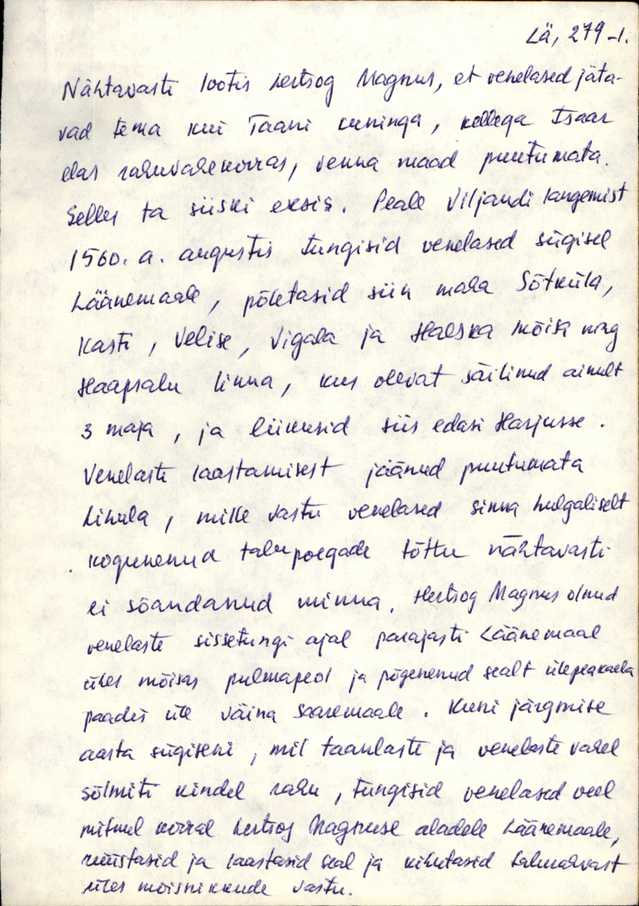 Lä, 279-1.
Nähtavasti lootis hertsog Magnus, et venelased jäta-
vad tema kui Taani kuninga, kellega Tsaar
elas rahuvahekorras, venna maad puutumata.
Selles ta siiski eksis. Peale Viljandi langemist
1560. a. augustis tungisid venelased sügisel
Läänemaale, põletasid siin maha Sõtküla,
Kasti, Velise, Vigala ja Haeska mõisa ning
Haapsalu linna, kus olevat säilinud ainult
3 maja, ja liikusid siis edasi Harjusse.
Venelaste laastamisest jäänud puutumata
Lihula, mille vastu venelased sinna hulgaliselt
kogunenud talupoegade tõttu nähtavasti
ei sõandanud minna. Hertsog Magnus olnud
venelaste sissetungi ajal parajasti Läänemaal
ühes mõisas pulmapeol ja põgenenud sealt ülepeakaela
paadis üle väina Saaremaale. Kuni järgmise
aasta sügiseni, mil taanlaste ja venelaste vahel
sõlmiti kindel rahu, tungisid venelased veel
mitmel korral hertsog Magnuse aladele Läänemaale,
rüüstasid ja laastasid seal ja kihutasid talurahvast
üles mõisnikkude vastu.